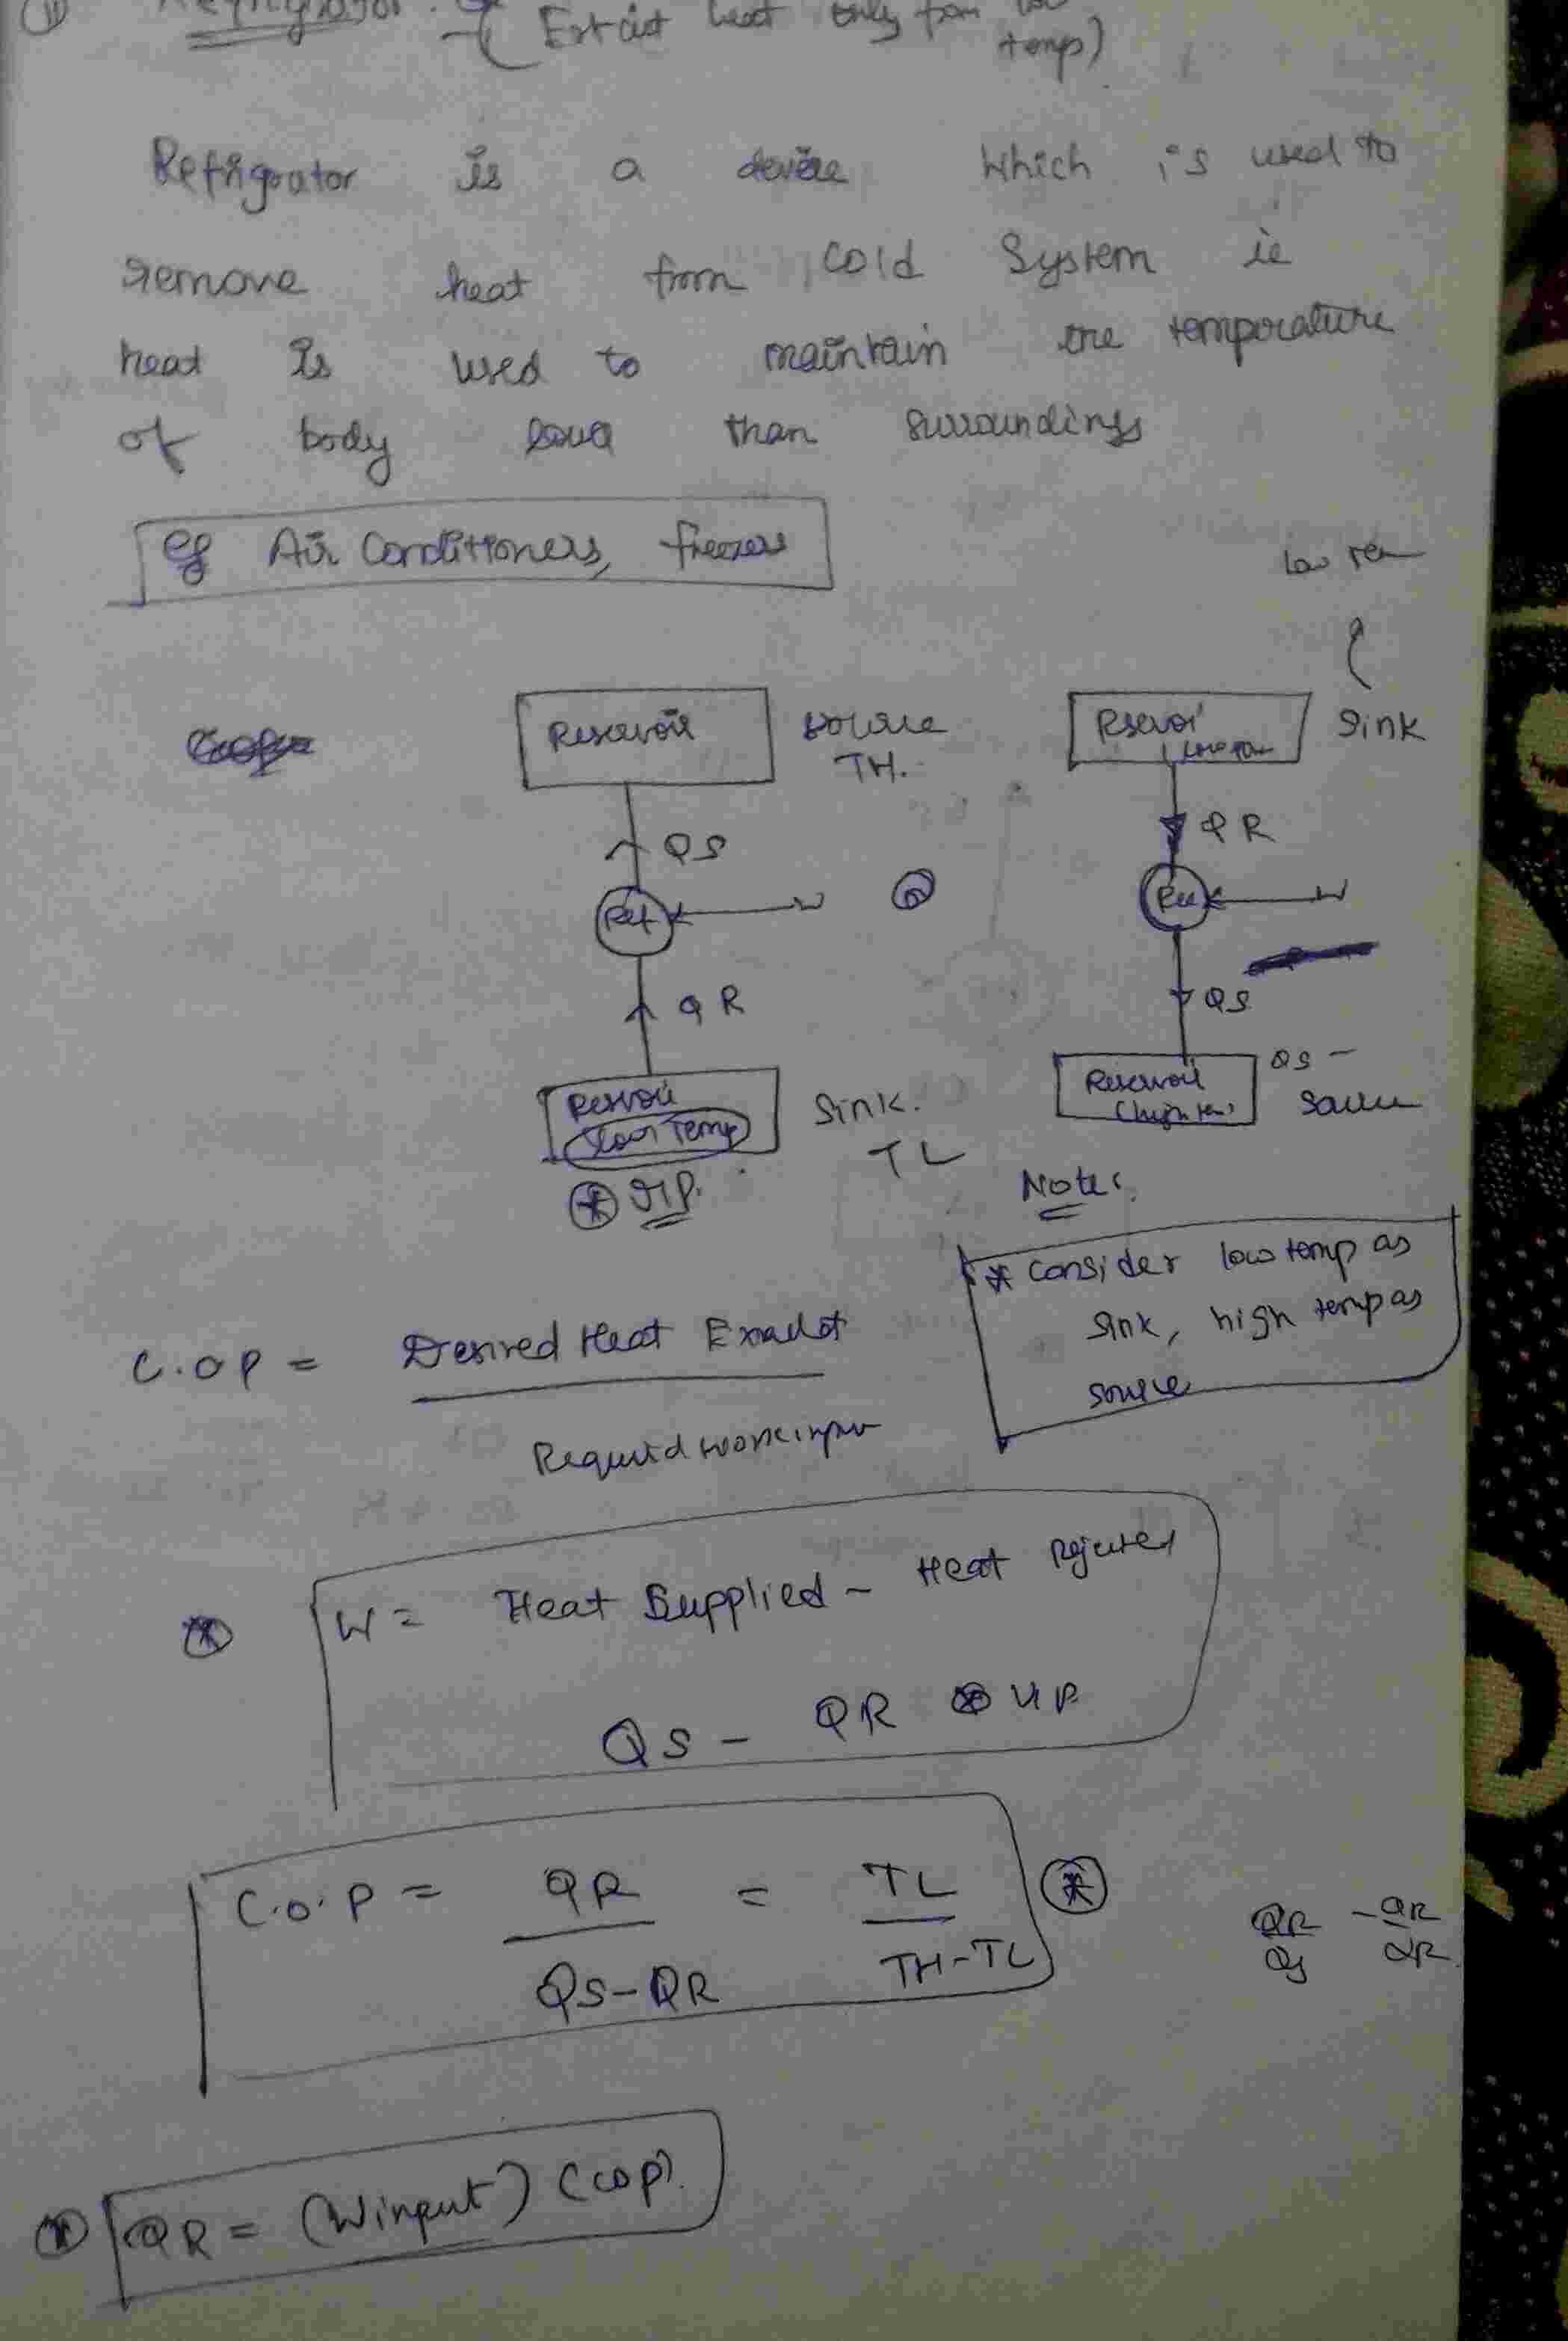 Refrigrator
( Extract heat only from low
temp)
Refrigrator is a device which is used to
remove heat from cold System ie
heat is used to maintain the temperature
of body lower than surroundings
eg Air Conditioners, freezers
low tem
Reservoir source
TH.
Resevoir sink
QS
QR
Ref W
Ref W
QR
QS
Resevoir
Low Temp
Sink.
TL
Reservoir
(high tem)
QS -
Source
Note:
* Consider low temp as
sink, high temp as
source
C.O.P = Desired Heat Exract
Required work input
W = Heat Supplied - Heat Rejected
QS - QR
C.O.P = QR = TL
QS-QR TH-TL
QR - QR
QS QR
QR = (Winput) (cop).